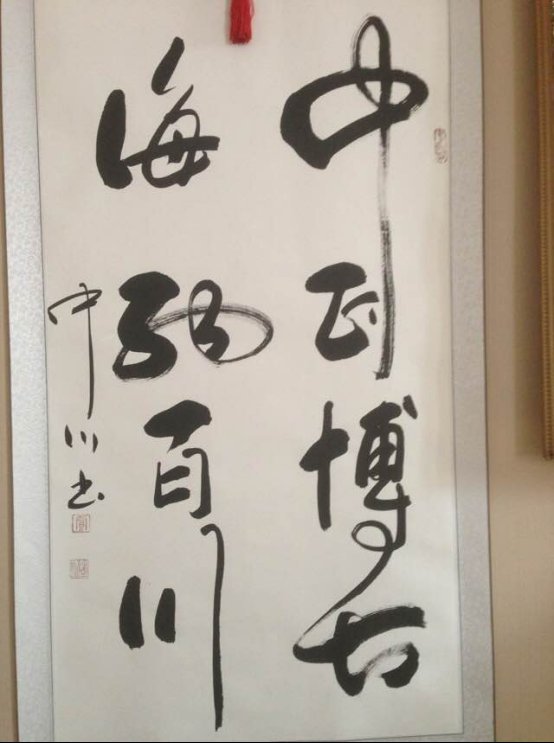 中正博大
海纳百川
中川书